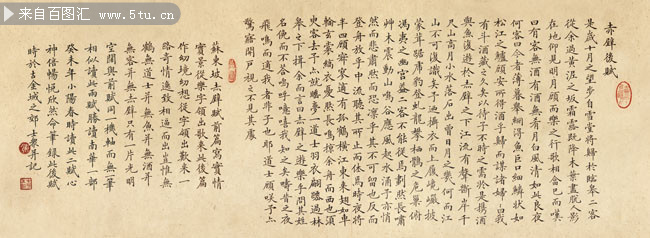 来自百图汇
www.5tu.cn
赤壁後賦
是歲十月之望步自雪堂將歸於臨皋二客
從余過黃泥之坂霜露既降木葉盡脫人影
在地仰見明月顧而樂之行歌相答已而嘆
曰有客無酒有酒無肴月白風清如此良夜
何客曰今者薄暮舉網得魚巨口細鱗狀如
松江之鱸顧安所得酒乎歸而謀諸婦婦曰我
有斗酒藏之久矣以待子不時之需於是攜酒
與魚復遊於赤壁之下江流有聲斷岸千
尺山高月小水落石出曾日月之幾何而江
山不可復識矣予乃攝衣而上履巉巖披
蒙茸踞虎豹登虬龍攀栖鶻之危巢俯
馮夷之幽宮蓋二客不能從焉劃然長嘯
草木震動山鳴谷應風起水涌予亦悄
然而悲肅然而恐凜乎其不可留也反而
登舟放乎中流聽其所止而休焉時夜將
半四顧寂寥適有孤鶴橫江東來翅如車
輪玄裳縞衣戛然長鳴掠余舟而西也須
臾客去予亦就睡夢一道士羽衣翩躚過臨
皋之下揖余而言曰赤壁之遊樂乎問其姓
名俛而不答嗚呼噫嘻我知之矣疇昔之夜
飛鳴而過我者非子也耶道士顧笑予亦
驚寤開戶視之不見其處
蘇東坡赤壁賦前篇寫實情
實景從樂字領出歌來此後篇
作幻境幻想從字領出歎來一
路奇情逸致相逼而出豈惟無
鶴無道士并無魚并無酒并
無客并無赤壁只有一片光明
空闊與前賦同一機軸而無一筆
相似讀此兩賦勝讀南華一部
癸未年小陽春時讀此二賦心
神倍暢悅欣然命筆錄此後賦
時於古金城之郊 士并記